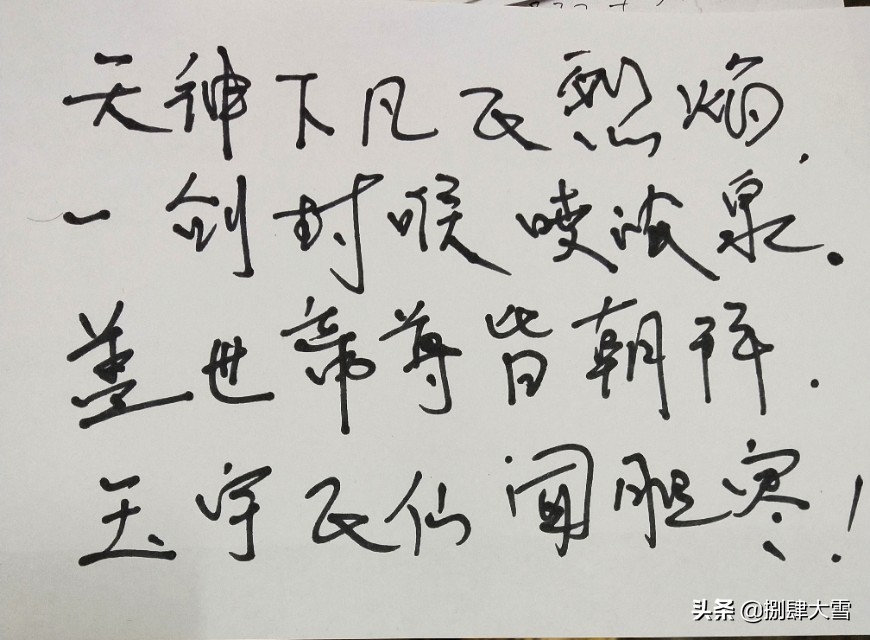 天神下凡飞烈焰,
一剑封喉喷泉。
盖世帝尊皆朝拜.
玉宇飞仙闻胆寒!
头条 @捌肆大雪